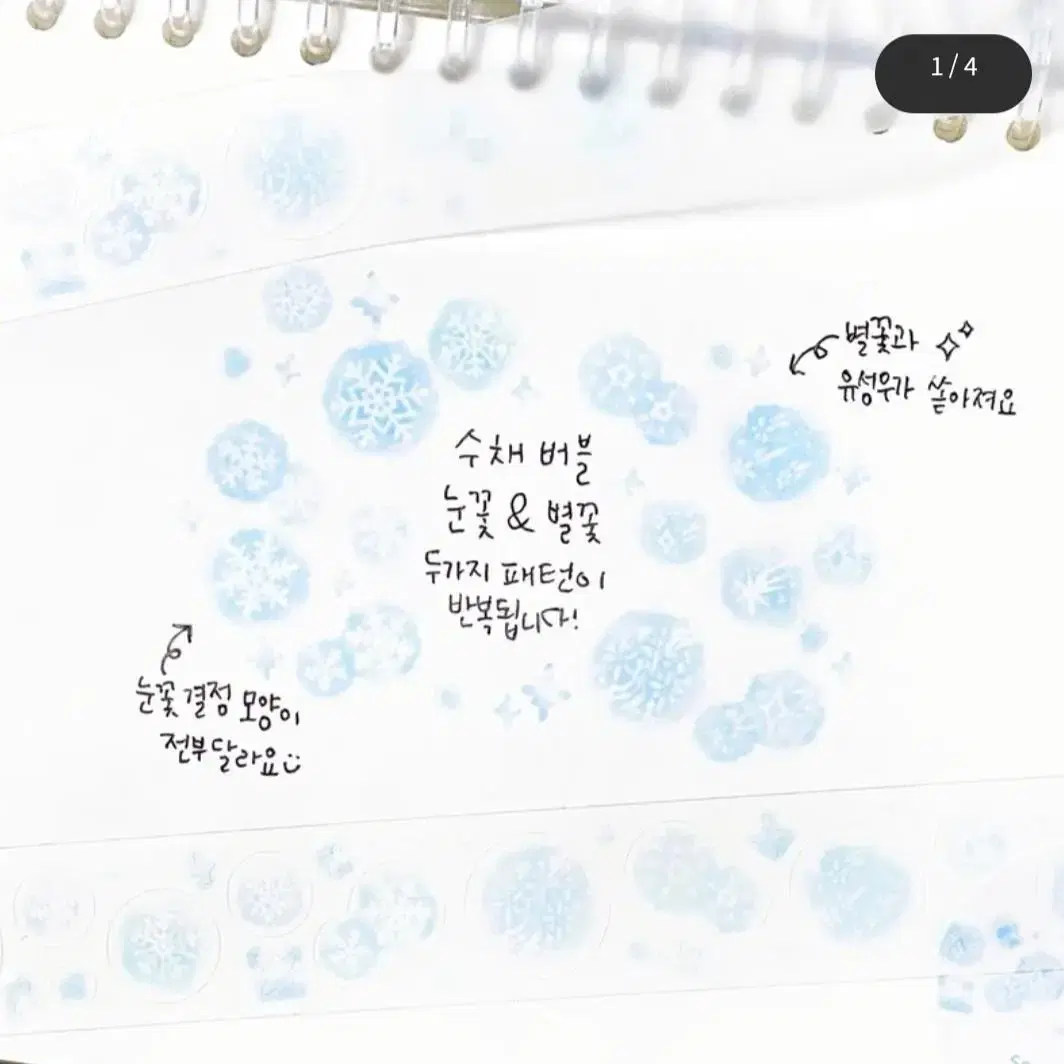 1/4
별꽃과
유성우가 쏟아져요
수채 버블
눈꽃 & 별꽃
두가지 패턴이
반복됩니다!
눈꽃 결정 모양이
전부 달라요